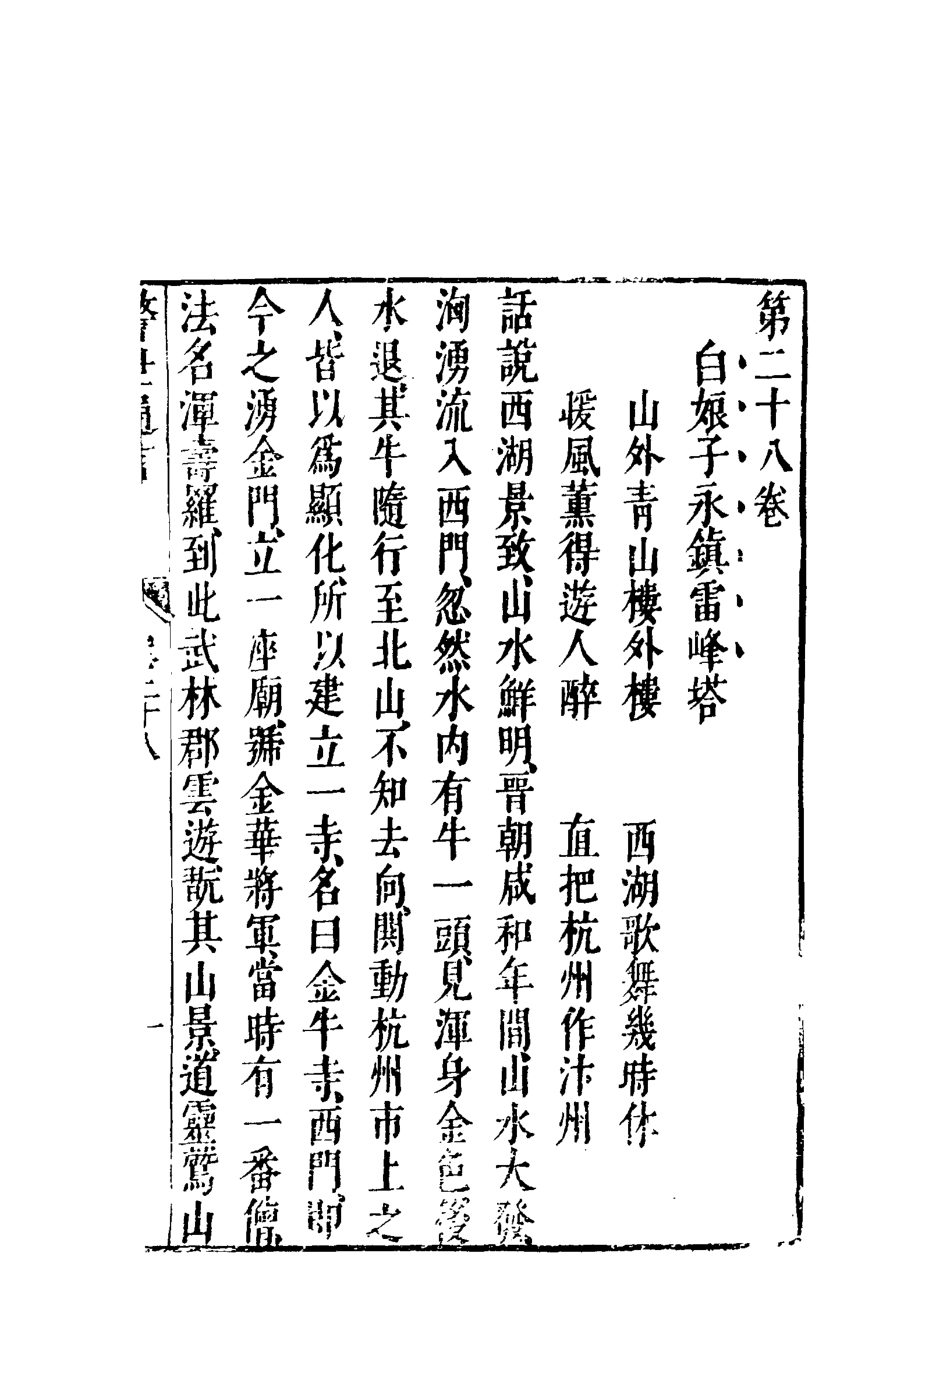 第二十八卷
白娘子永鎮雷峰塔
山外青山樓外樓　西湖歌舞幾時休
暖風薰得遊人醉　直把杭州作汴州
話說西湖景致、山水鮮明、晉朝咸和年間、山水大發、
洶湧流入西門、忽然水內有牛一頭、見渾身金色、後
水退、其牛隨行至北山、不知去向、鬨動杭州市上之
人、皆以爲顯化、所以建立一寺、名曰金牛寺、西門、即
今之湧金門、立一座廟、號金華將軍、當時有一番僧、
法名渾壽羅、到此武林郡雲遊、翫其山景、道靈鷲山
警世通言　卷二十八　一